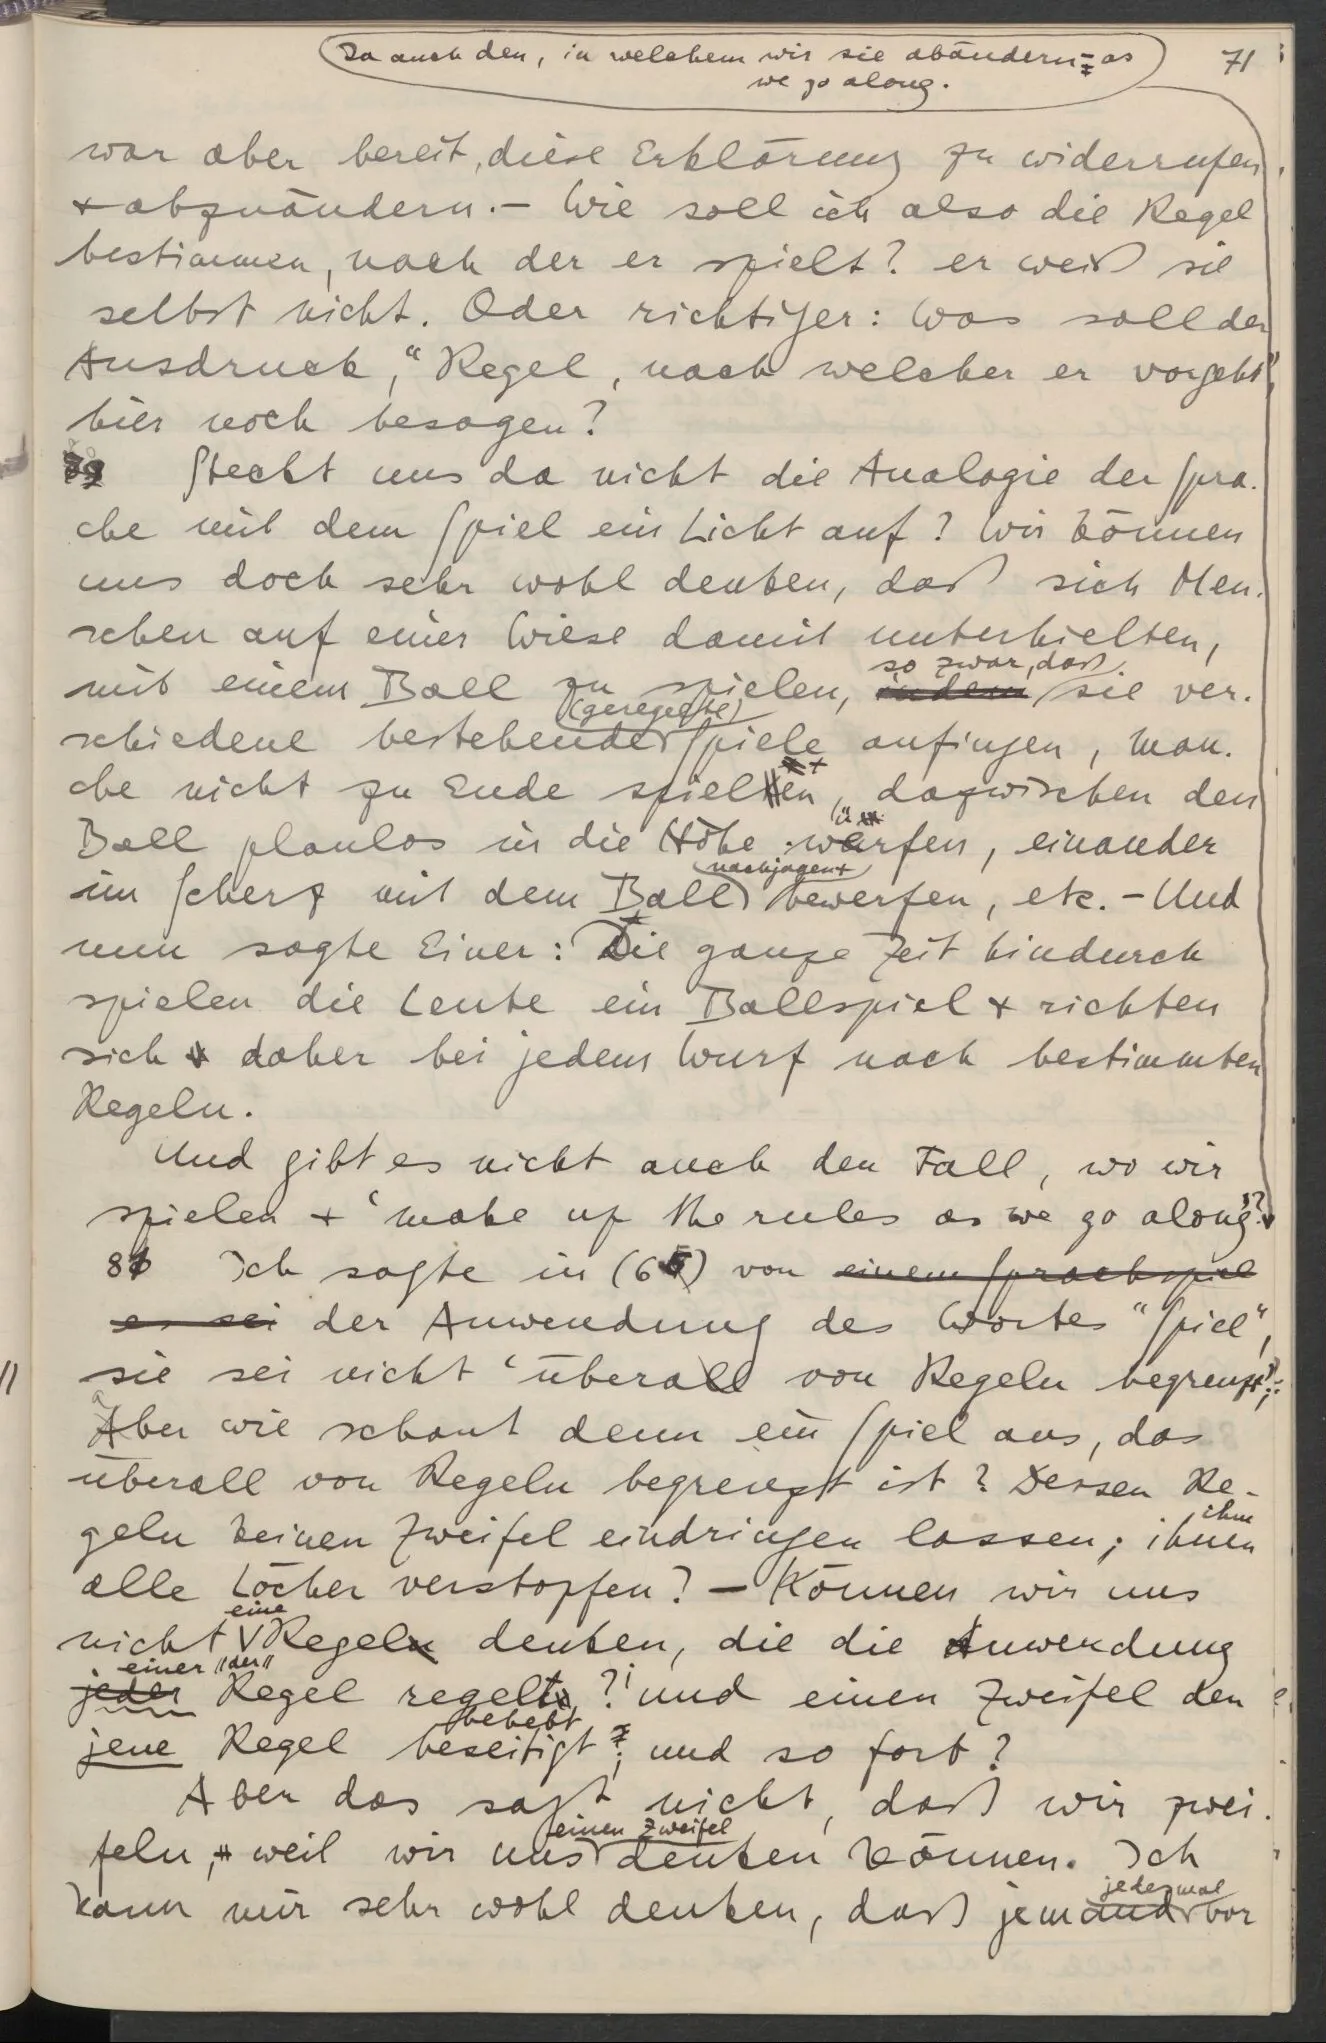 Ja auch den, in welchem wir sie abändern – as
we go along.
71
war aber bereit, diese Erklärung zu widerrufen
+ abzuändern. – Wie soll ich also die Regel
bestimmen, nach der er spielt? er weiß sie
selbst nicht. Oder richtiger: Was soll der
Ausdruck, “Regel, nach welcher er vorgeht”,
hier noch besagen?
Steckt uns da nicht die Analogie der Spra-
che mit dem Spiel ein Licht auf? Wir können
uns doch sehr wohl denken, daß sich Men-
schen auf einer Wiese damit unterhielten,
so zwar, daß
mit einem Ball zu spielen, indem sie ver-
(geregelte)
schiedene bestehende Spiele anfingen, man-
che nicht zu Ende spielten, dazwischen den
Ball planlos in die Höhe würfen, einander
nachjagen +
im Scherz mit dem Ball bewerfen, etc. – Und
nun sagte Einer: Die ganze Zeit hindurch
spielen die Leute ein Ballspiel + richten
sich daher bei jedem Wurf nach bestimmten
Regeln.
Und gibt es nicht auch den Fall, wo wir
spielen + ‘make up the rules as we go along’?
Ich sagte in von einem Sprachspiel
es sei der Anwendung des Wortes “Spiel”,
sie sei nicht ‘überall von Regeln begrenzt’;
Aber wie schaut denn ein Spiel aus, das
überall von Regeln begrenzt ist? Dessen Re-
ihm
geln keinen Zweifel eindringen lassen; ihnen
alle Löcher verstopfen? – Können wir uns
eine
nicht Regeln denken, die die Anwendung
einer "der"
jeder Regel regelt? und einen Zweifel den
behebt
jene Regel beseitigt; und so fort?
Aber das sagt nicht, daß wir zwei-
einen Zweifel
feln, weil wir uns denken können. Ich
jedesmal
kann mir sehr wohl denken, daß jemand vor